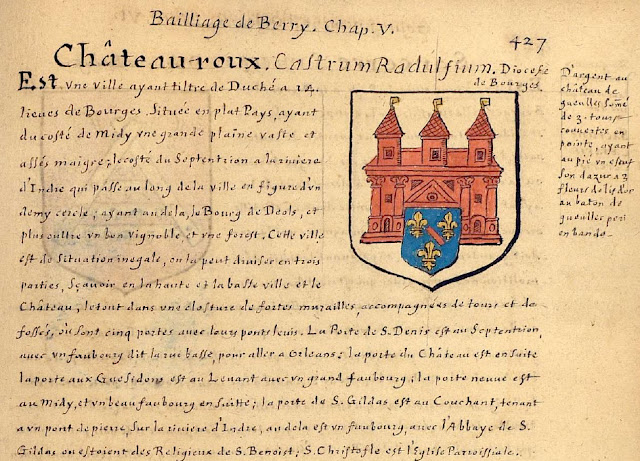 Bailliage de Berry. Chap. V.
427
Château-roux. Castrum Radulfium. Diocese
de Bourges
Est vne ville ayant tiltre de Duché a 14
lieues de Bourges. Située en plat Pays, ayant
du costé de Midy vne grande plaine vaste et
assés maigre; le costé du Septentrion a la riuiere
d'Indre qui passe au long de la ville en figure d'vn
demy cercle; ayant au dela, le Bourg de Deols, et
plus oultre vn bon vignoble et vne forest. Cette ville
est de situation inegale, on la peut diviser en trois
parties, sçavoir en la haute et la basse ville et le
Château, le tout dans vne closture de fortes murailles, accompagnées de tours et de
fossés, où sont cinq portes avec leurs ponts levis. La Porte de S. Denis est au Septentrion,
avec vn faubourg dit la rue basse, pour aller a Orleans; la porte du Château est en suite
la porte aux Guesdons est au Leuant avec vn grand faubourg; la porte neuue est
au Midy, et vn beau faubourg en suitte; la porte de S. Gildas est au Couchant, tenant
a vn pont de pierre, sur la riviere d'Indre, au dela est vn faubourg, avec l'Abbaye de S.
Gildas ou estoient des Religieux de S. Benoist; S. Christofle est l'Eglise Parroissiale.
D'argent au
château de
gueulles somé
de 3. tours
couvertes en
pointe, ayant
au pié vn escuf
son d'azur a 3
fleurs de lis d'or
au baton de
gueulles peri
en bande